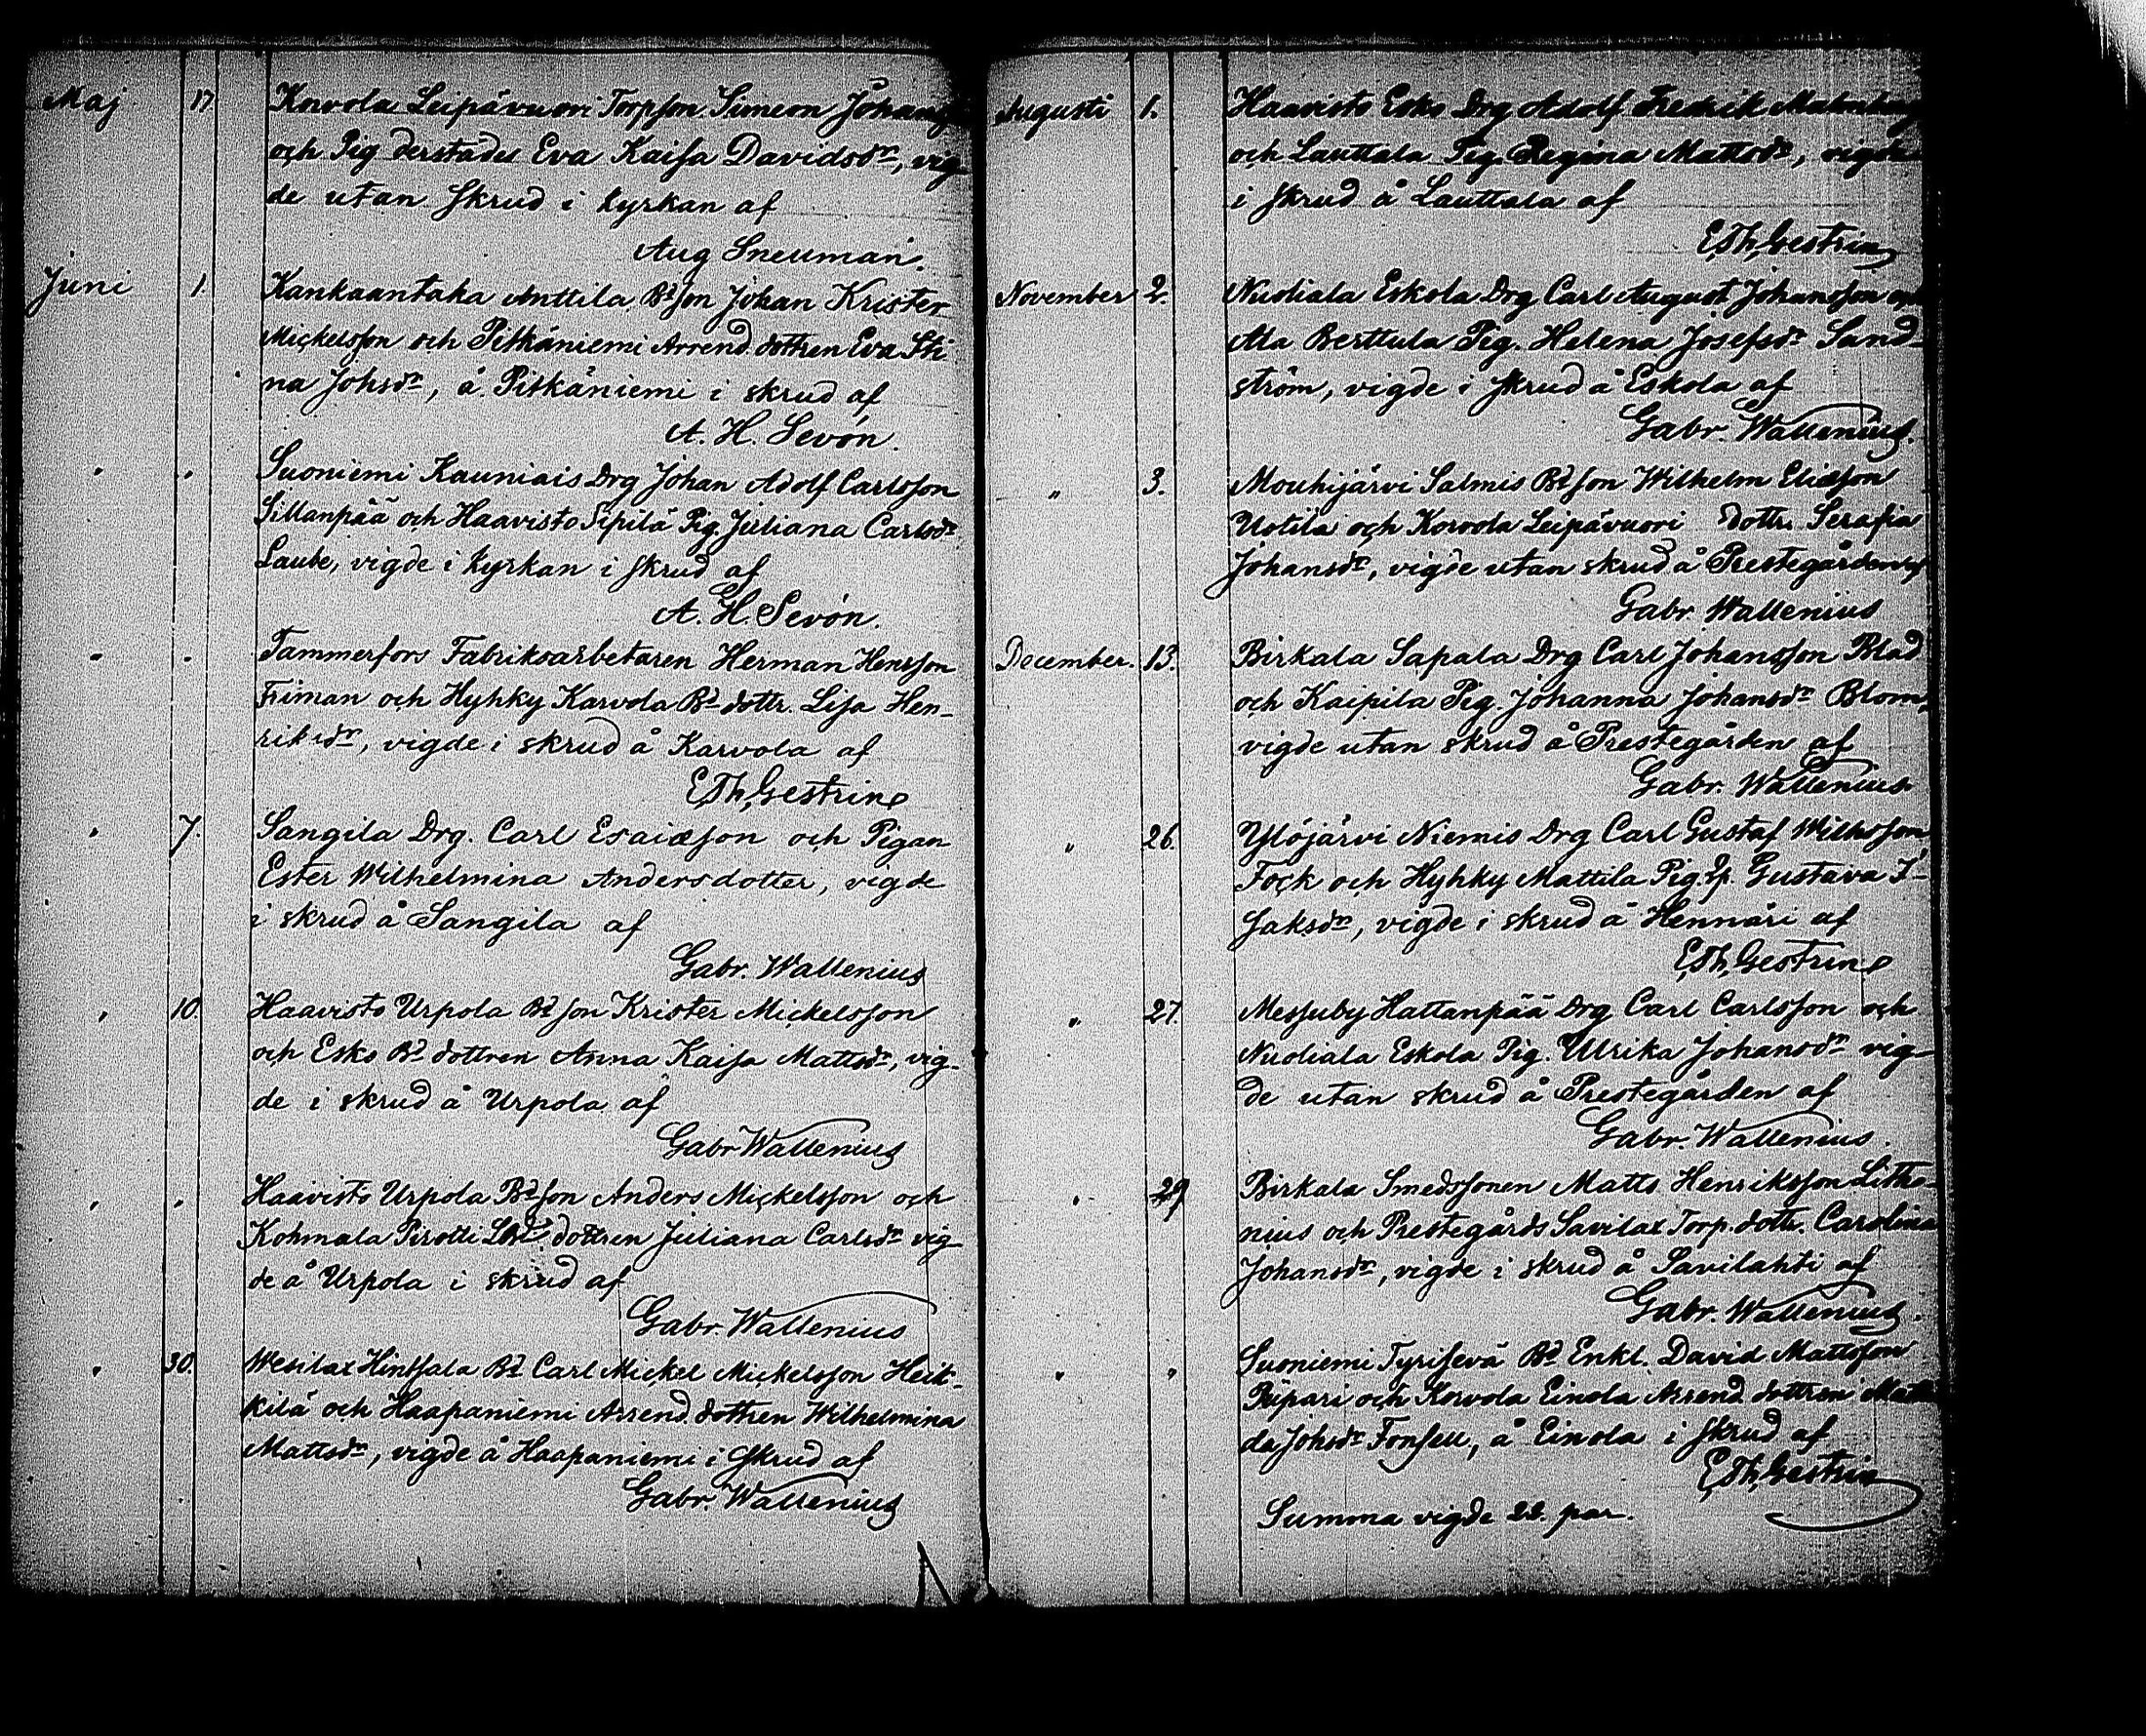 Maj 17 Korvola Leipävuori Torpson Simeon Johans
och Pig derstades Eva Kaisa Davidsdr, vig
de utan skrud i kyrkan af
Aug Sneuman.
Juni 1. Kankaantaka Anttila Bdson Johan Krister
Mickelsson och Pitkäniemi Arrend. dottren Eva Sti
na Johsdr, å Pitkäniemi i skrud af
A. H. Sevón.
" " Suoniemi Kauniais Drg Johan Adolf Carlsson
Sillanpää och Haavisto Sipilä Pig. Juliana Carlsdr
Laube, vigde i kyrkan i skrud af
A. H. Sevón.
" " Tammerfors Fabriksarbetaren Herman Henrsson
Friman och Hyhky Karvola Bd dottr. Lisa Hen-
riksdr, vigde i skrud å Karvola af
E. Th. Gestrin
" 7. Sangila Drg. Carl Esaiæson och Pigan
Ester Wilhelmina Andersdotter, vigde
i skrud å Sangila af
Gabr. Wallenius
" 10. Haavisto Urpola Bdson Krister Mickelsson
och Esko Bd dottren Anna Kaisa Mattsdr, vig-
de i skrud å Urpola af
Gabr Wallenius
" " Haavisto Urpola Bdson Anders Mickelsson och
Kohmala Pirotti dottren Juliana Carlsdr vig
de å Urpola i skrud af
Gabr. Wallenius
" 30. Wesilax Hinsala Bd Carl Mickel Mickelsson Heik-
kilä och Haapaniemi Arrend. dottren Wilhelmina
Mattsdr, vigde å Haapaniemi i skrud af
Gabr. Wallenius
Augusti 1. Haavisto Esko Drg Adolf Fredrik Malmberg
och Lauttala Pig Regina Mattsdr, vigde
i skrud å Lauttala af
E. Th. Gestrin
November 2. Nuoliala Eskola Drg Carl August Johansson och
Ala Berttula Pig. Helena Josefsdr Sand-
ström, vigde i skrud å Eskola af
Gabr. Wallenius.
" 3. Mouhijärvi Salmis Bdson Wilhelm Eliæson
Uotila och Korvola Leipävuori dottr. Serafia
Johansdr, vigde utan skrud å Prestegården af
Gabr. Wallenius
December. 13. Birkala Sapala Drg Carl Johansson Blad
och Kaipila Pig. Johanna Johansdr Blom,
vigde utan skrud å Prestegården af
Gabr. Wallenius
" 26. Ylöjärvi Niemis Drg Carl Gustaf Wilhsson
Fock och Hyhky Mattila Pig. Gustava I-
saksdr, vigde i skrud å Hennäri af
E. Th. Gestrin
" 27. Messuby Hattanpää Drg Carl Carlsson och
Nuoliala Eskola Pig. Ulrika Johansdr vig-
de utan skrud å Prestegården af
Gabr. Wallenius.
" 29 Birkala Smedssonen Matts Henriksson Lithe-
nius och Prestegårds Savilax Torp. dottr. Carolina
Johansdr, vigde i skrud å Savilahti af
Gabr. Wallenius.
" " Suoniemi Tyrisevä Bd Enkl. David Mattsson
Piipari och Korvola Einola Arrend. dottren Matil
da Johsdr Fonsell, å Einola i skrud af
E. Th. Gestrin
Summa vigde 22. par.